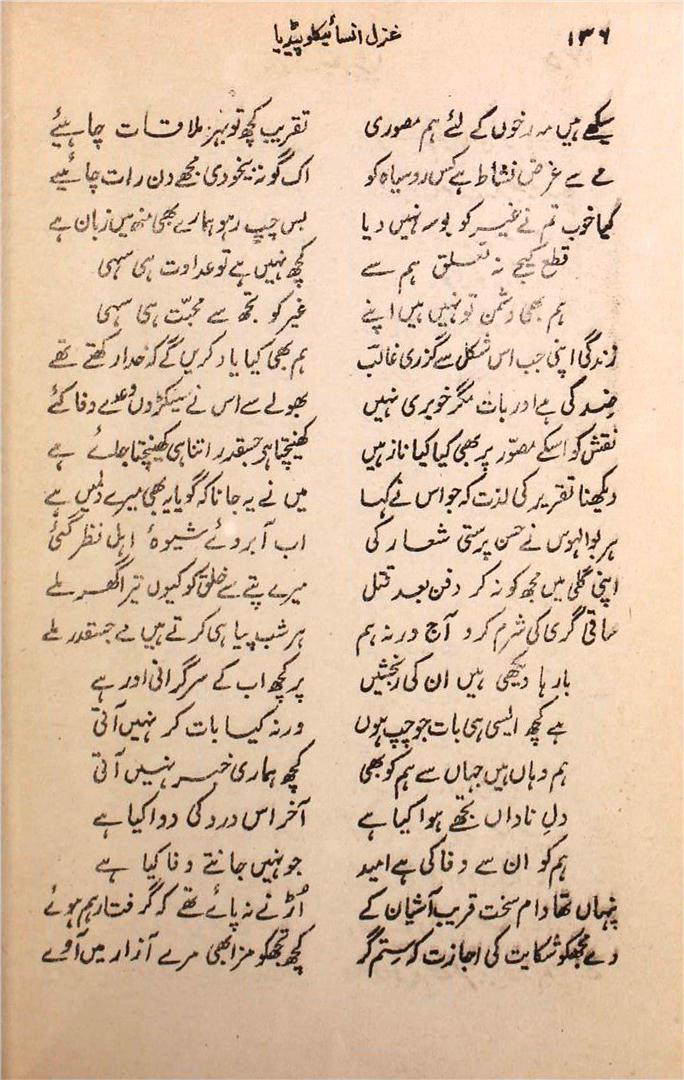 ۱۳۶ غزل انسائیکلوپیڈیا
سیکھے ہیں مہ رخوں کے لئے ہم مصوری تقریب کچھ تو بہرِ ملاقات چاہیئے
مے سے غرض نشاط ہے کس روسیاہ کو اک گونہ بیخودی مجھے دن رات چاہیئے
کیا خوب تم نے غیر کو بوسہ نہیں دیا بس چپ رہو ہمارے بھی منھ میں زبان ہے
قطع کیجے نہ تعلق ہم سے کچھ نہیں ہے تو عداوت ہی سہی
ہم بھی دشمن تو نہیں ہیں اپنے غیر کو تجھ سے محبّت ہی سہی
زندگی اپنی جب اس شکل سے گزری غالبؔ ہم بھی کیا یاد کریں گے کہ خدا رکھتے تھے
ضد کی ہے اور بات مگر خو بری نہیں بھولے سے اس نے سیکڑوں وعدے وفا کئے
نقش کو اسکے مصوّر پر بھی کیا کیا ناز ہیں کھینچتا ہے جسقدر اتنا ہی کھینچتا جائے ہے
دیکھنا تقریر کی لذت کہ جو اس نے کہا میں نے یہ جانا کہ گویا یہ بھی میرے دلمیں ہے
ہر بوالہوس نے حسن پرستی شعار کی اب آبروئے شیوۂ اہل نظر گئی
اپنی گلی میں مجھ کو نہ کر دفن بعد قتل میرے پتے سے خلق کو کیوں تیرا گھر ملے
ساقی گری کی شرم کرو آج ورنہ ہم ہر شب پیا ہی کرتے ہیں مے جسقدر ملے
بارہا دیکھی ہیں ان کی رنجشیں پر کچھ اب کے سرگرانی اور ہے
ہے کچھ ایسی ہی بات جو چپ ہوں ورنہ کیا بات کر نہیں آتی
ہم وہاں ہیں جہاں سے ہم کو بھی کچھ ہماری خبر نہیں آتی
دلِ ناداں تجھے ہوا کیا ہے آخر اس درد کی دوا کیا ہے
ہم کو ان سے وفا کی ہے امید جو نہیں جانتے وفا کیا ہے
پنہاں تھا دام سخت قریب آشیان کے اُڑنے نہ پائے تھے کہ گرفتار ہم ہوئے
دے مجھکو شکایت کی اجازت کہ ستم گر کچھ تجھکو مزا بھی مرے آزار میں آوے